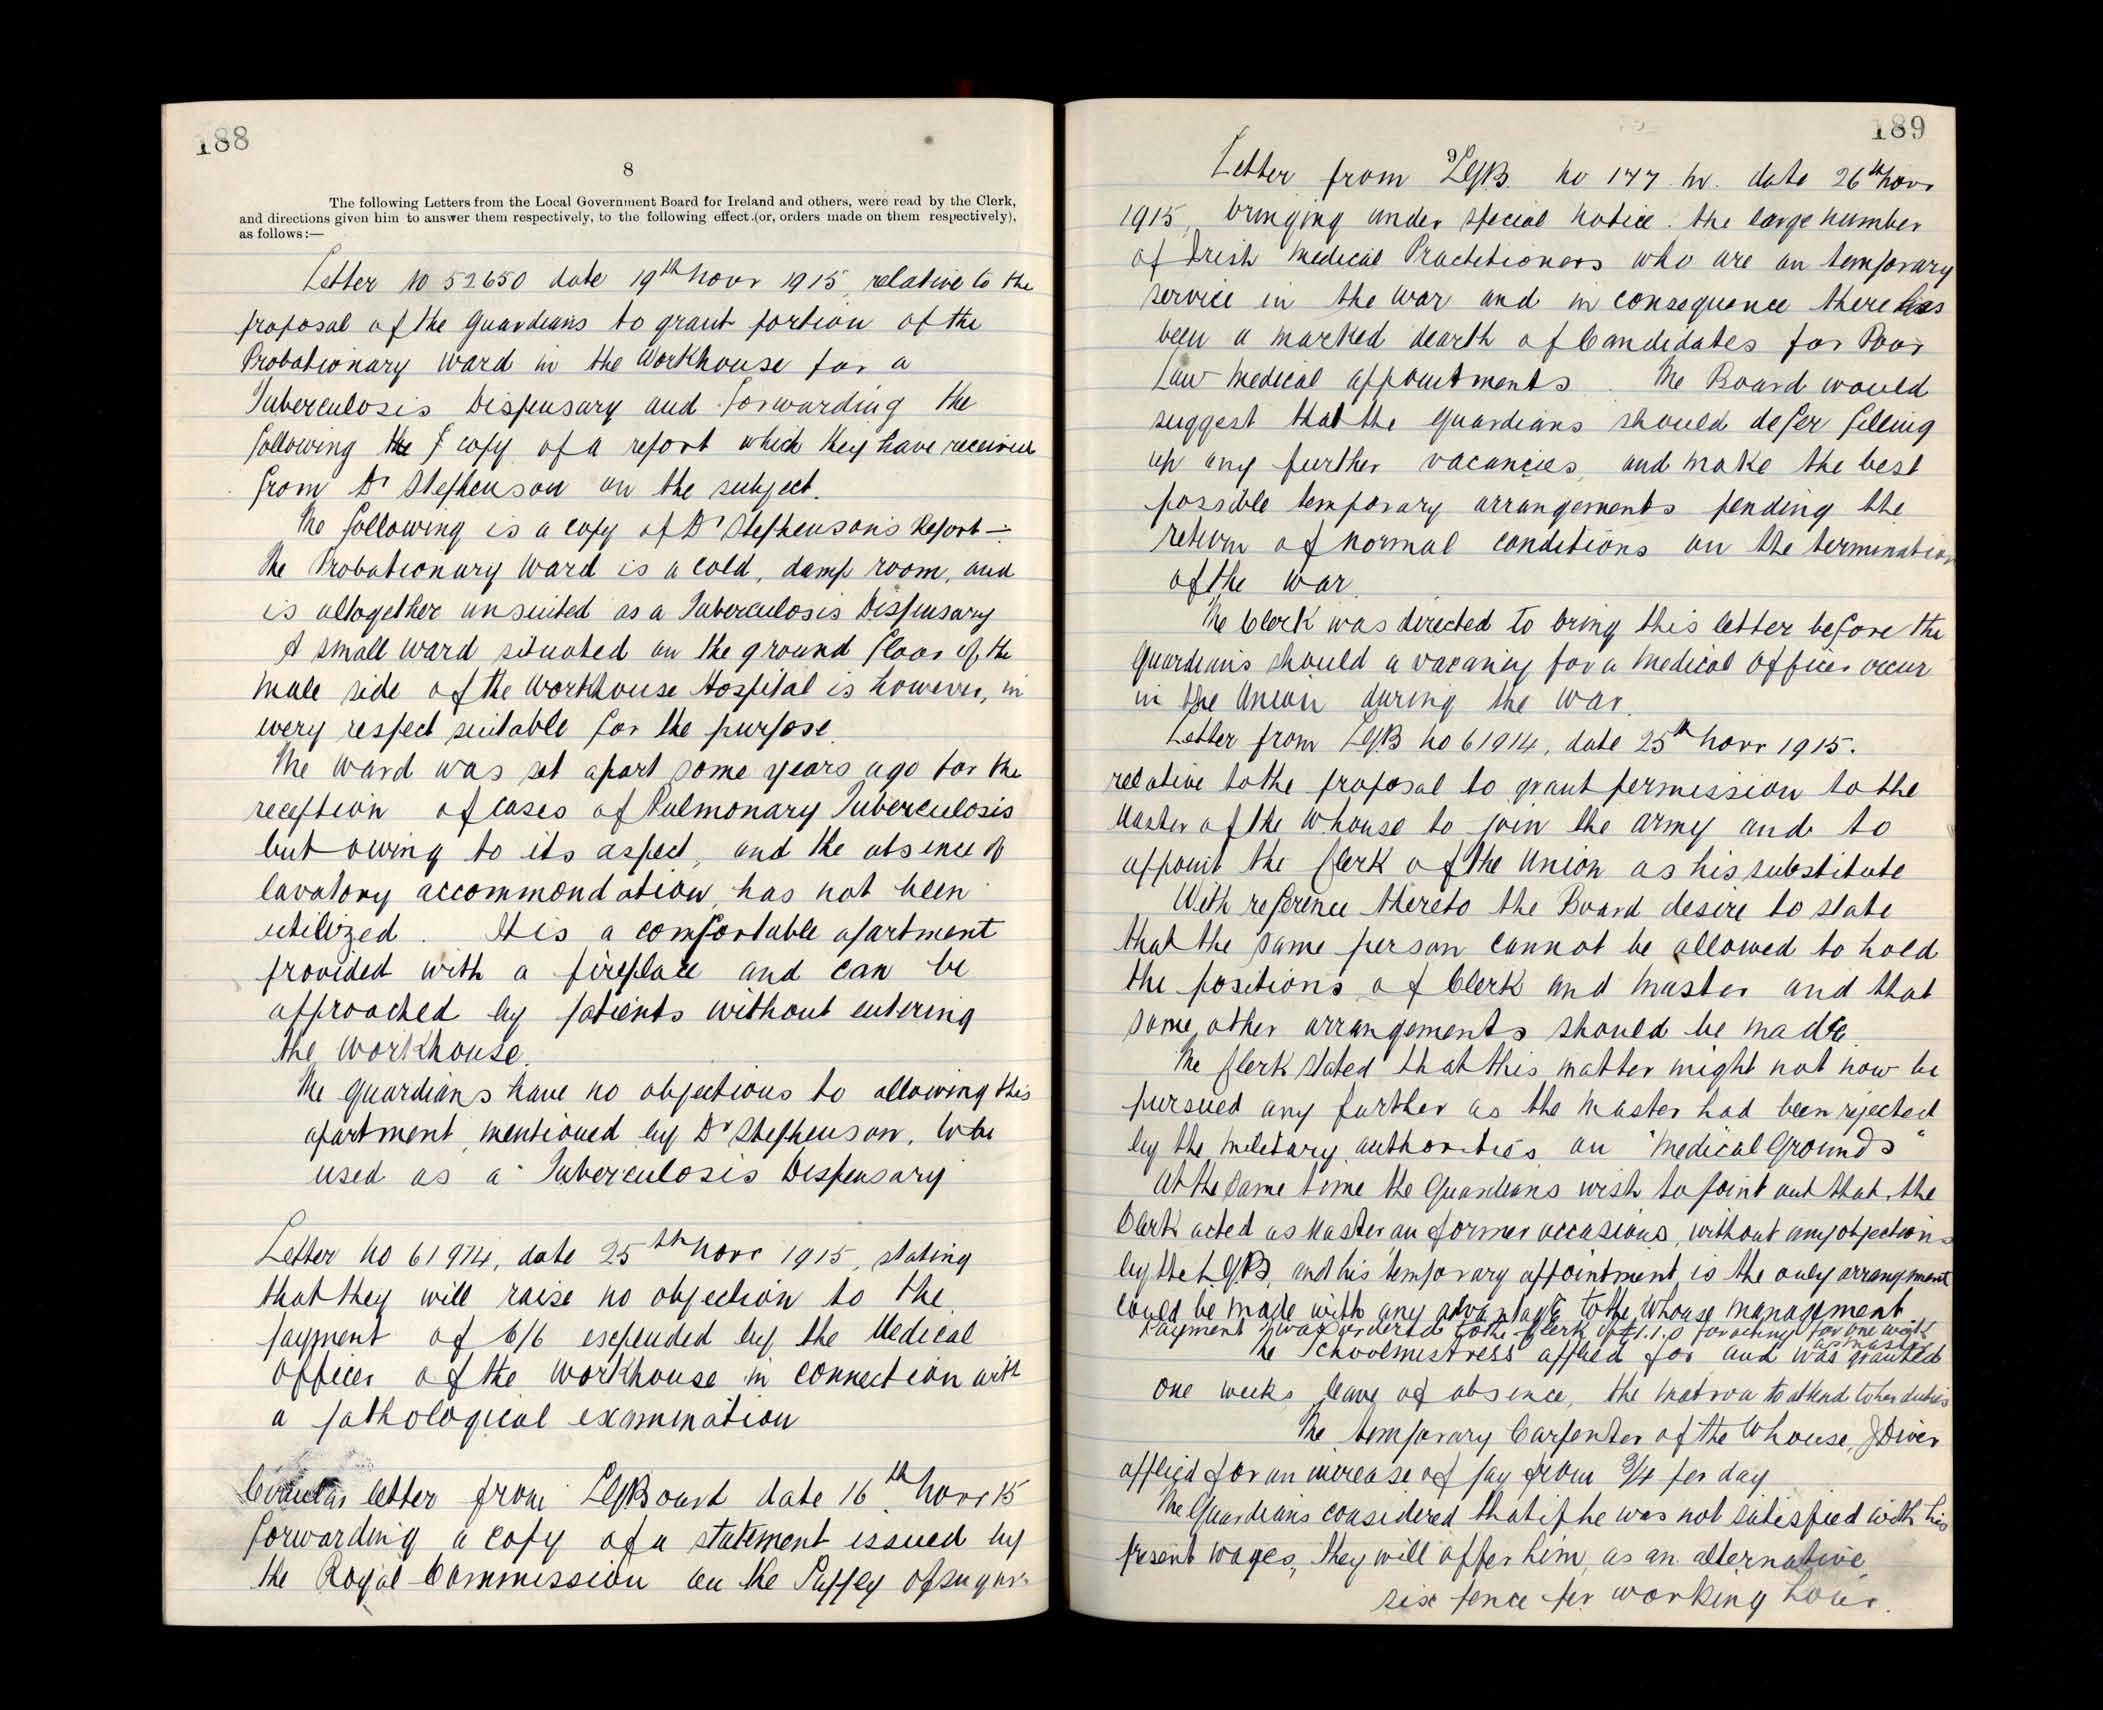 188
8
The following Letters from the Local Government Board for Ireland and others, were read by the Clerk,
and directions given him to answer them respectively, to the following effect (or, orders made on them respectively),
as follows:—
Letter No 52650 date 19th Novr 1915, relative to the
proposal of the Guardians to grant portion of the
Probationary Ward in the Workhouse for a
Tuberculosis Dispensary and forwarding the
following the copy of a report which they have received
from Dr Stephenson on the subject.
The following is a copy of Dr Stephenson's Report —:
The Probationary Ward is a cold, damp room, and
is altogether unsuited as a Tuberculosis Dispensary
A small ward situated on the ground floor of the
male side of the Workhouse Hospital is however, in
every respect suitable for the purpose.
The Ward was set apart some years ago for the
reception of cases of Pulmonary Tuberculosis
but owing to its aspect, and the absence of
lavatory accommondation, has not been
utilized. It is a comfortable apartment
provided with a fireplace and can be
approached by patients without entering
the Workhouse.
The Guardians have no objections to allowing this
apartment, mentioned by Dr Stephenson, to be
used as a Tuberculosis Dispensary
Letter No 61974, date 25th Novr 1915, stating
that they will raise no objection to the
payment of 6/6 expended by the Medical
Officer of the Workhouse in connection with
a pathological examination
Circular letter from LGBoard date 16th Novr 15
forwarding a copy of a statement issued by
the Royal Commission on the Supply of sugar.
189
9
Letter from LGB. No 177. M. date 26th Novr
1915, bringing under special notice the large number
of Irish Medical Practitioners who are on temporary
service in the War and in consequence there has
been a marked dearth of Candidates for Poor
Law Medical appointments. The Board would
suggest that the Guardians should defer filling
up any further vacancies, and make the best
possible temporary arrangements pending the
return of normal conditions on the termination
of the War.
The Clerk was directed to bring this letter before the
Guardians should a vacancy for a Medical Officer occur
in the Union during the War.
Letter from LGB No 61914, date 25th Novr 1915.
relative to the proposal to grant permission to the
Master of the Whouse to join the army and to
appoint the Clerk of the Union as his substitute
With reference thereto the Board desire to state
that the same person cannot be allowed to hold
the positions of Clerk and Master and that
some other arrangements should be made
The Clerk stated that this matter might not now be
pursued any further as the Master had been rejected
by the Military authorities on "Medical Grounds"
At the same time the Guardians wish to point out that the
Clerk acted as Master on former occasions, without any objections
by the LGB, and his temporary appointment is the only arrangement
could be made with any advantage to the Whouse management
Payment was ordered to the Clerk of £1.1.0 for acting for one week
as master
The Schoolmistress applied for and was granted
one weeks leave of absence, the Matron to attend to her duties
The temporary Carpenter of the Whouse, J Diver
applied for an increase of pay from 3/4 per day
The Guardians considered that if he was not satisfied with his
present wages, they will offer him, as an alternative,
six pence per working hour.